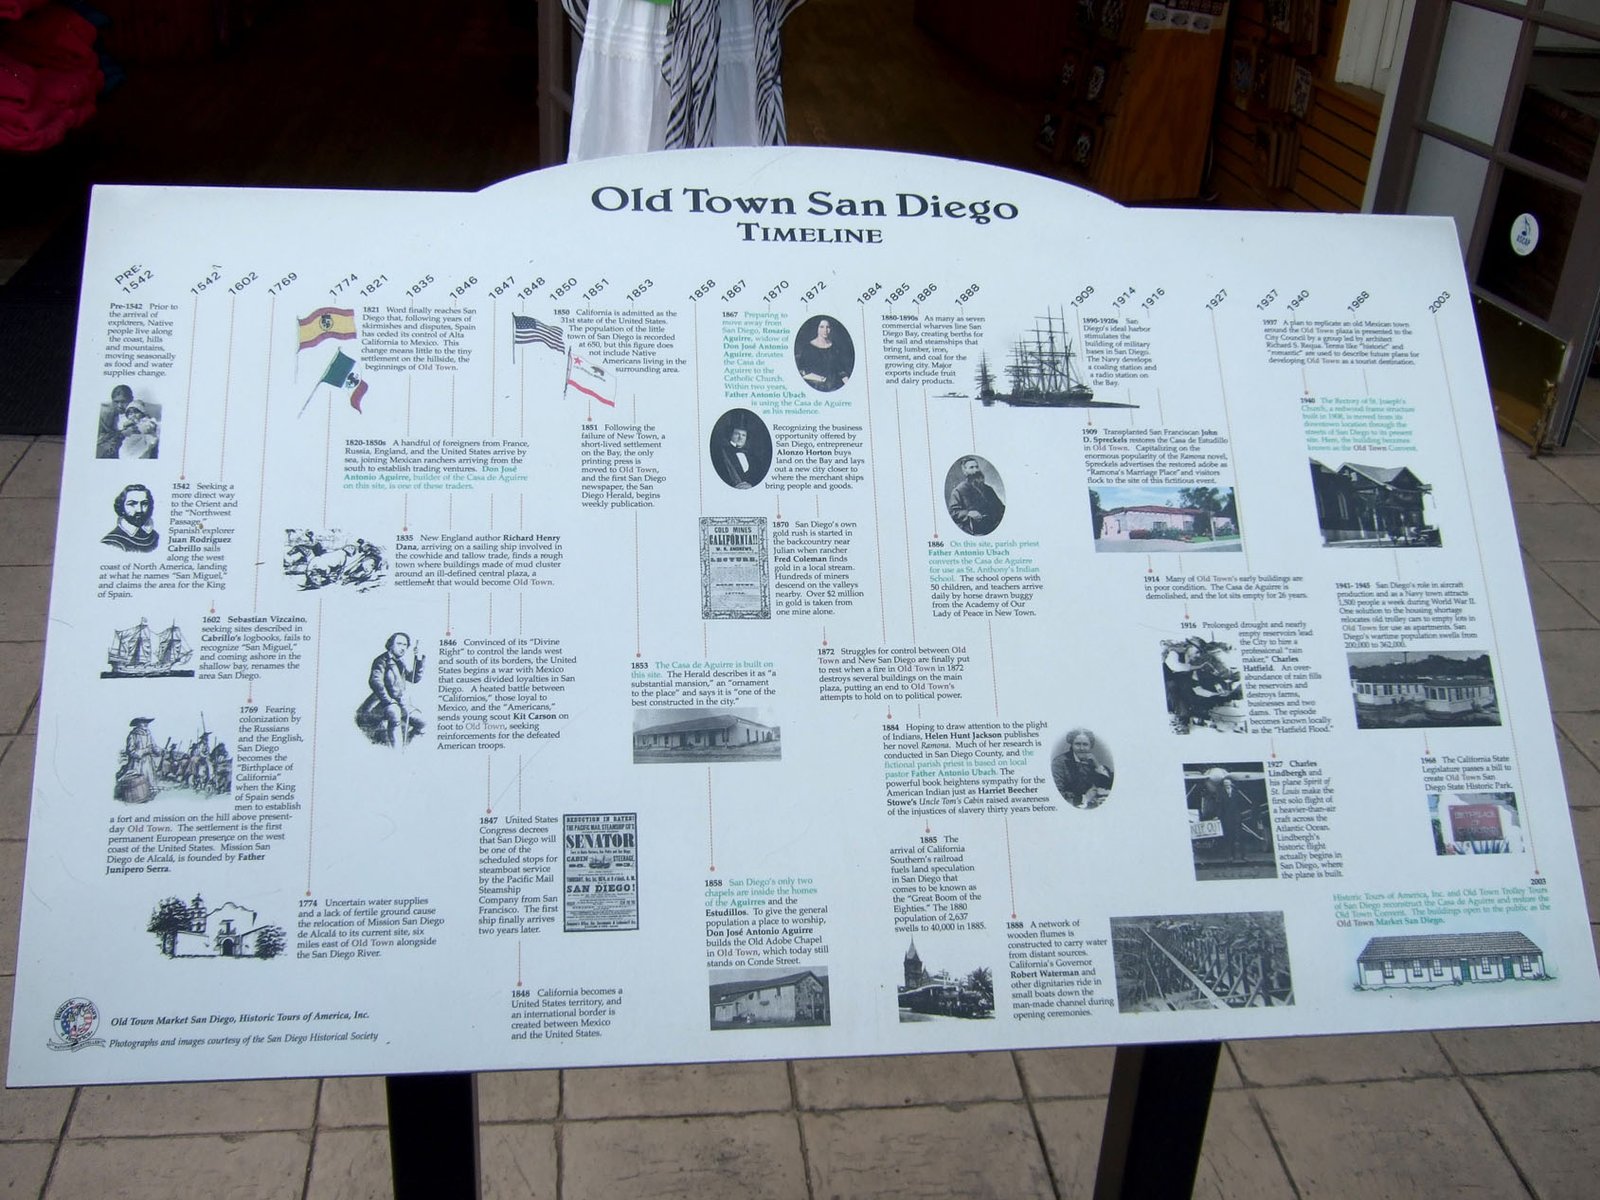 Old Town San Diego
TIMELINE
PRE-
1542
1542
1602
1769
1774
1821
1835
1846
1847
1848
1850
1851
1853
1858
1867
1870
1872
1884
1885
1886
1888
1909
1914
1916
1927
1937
1940
1968
2003
Pre-1542 Prior to
the arrival of
explorers, Native
people live along
the coast, hills
and mountains,
moving seasonally
as food and water
supplies change.
1542 Seeking a
more direct way
to the Orient and
the "Northwest
Passage,"
Spanish explorer
Juan Rodriguez
Cabrillo sails
along the west
coast of North America, landing
at what he names "San Miguel,"
and claims the area for the King
of Spain.
1602 Sebastian Vizcaino,
seeking sites described in
Cabrillo's logbooks, fails to
recognize "San Miguel,"
and coming ashore in the
shallow bay, renames the
area San Diego.
1769 Fearing
colonization by
the Russians
and the English,
San Diego
becomes the
"Birthplace of
California"
when the King
of Spain sends
men to establish
a fort and mission on the hill above present-
day Old Town. The settlement is the first
permanent European presence on the west
coast of the United States. Mission San
Diego de Alcalá, is founded by Father
Junipero Serra.
1774 Uncertain water supplies
and a lack of fertile ground cause
the relocation of Mission San Diego
de Alcalá to its current site, six
miles east of Old Town alongside
the San Diego River.
1821 Word finally reaches San
Diego that, following years of
skirmishes and disputes, Spain
has ceded its control of Alta
California to Mexico. This
change means little to the tiny
settlement on the hillside, the
beginnings of Old Town.
1820-1850s A handful of foreigners from France,
Russia, England, and the United States arrive by
sea, joining Mexican ranchers arriving from the
south to establish trading ventures. Don José
Antonio Aguirre, builder of the Casa de Aguirre
on this site, is one of these traders.
1835 New England author Richard Henry
Dana, arriving on a sailing ship involved in
the cowhide and tallow trade, finds a rough
town where buildings made of mud cluster
around an ill-defined central plaza, a
settlement that would become Old Town.
1846 Convinced of its "Divine
Right" to control the lands west
and south of its borders, the United
States begins a war with Mexico
that causes divided loyalties in San
Diego. A heated battle between
"Californios," those loyal to
Mexico, and the "Americans,"
sends young scout Kit Carson on
foot to Old Town, seeking
reinforcements for the defeated
American troops.
1847 United States
Congress decrees
that San Diego will
be one of the
scheduled stops for
steamboat service
by the Pacific Mail
Steamship
Company from San
Francisco. The first
ship finally arrives
two years later.
REDUCTION IN RATES!
THE PACIFIC MAIL STEAMSHIP CO'S
SENATOR
CABIN
STEERAGE
SAN DIEGO!
1848 California becomes a
United States territory, and
an international border is
created between Mexico
and the United States.
1850 California is admitted as the
31st state of the United States.
The population of the little
town of San Diego is recorded
at 650, but this figure does
not include Native
Americans living in the
surrounding area.
1851 Following the
failure of New Town, a
short-lived settlement
on the Bay, the only
printing press is
moved to Old Town,
and the first San Diego
newspaper, the San
Diego Herald, begins
weekly publication.
1853 The Casa de Aguirre is built on
this site. The Herald describes it as "a
substantial mansion," an "ornament
to the place" and says it is "one of the
best constructed in the city."
1858 San Diego's only two
chapels are inside the homes
of the Aguirres and the
Estudillos. To give the general
population a place to worship,
Don José Antonio Aguirre
builds the Old Adobe Chapel
in Old Town, which today still
stands on Conde Street.
1867 Preparing to
move away from
San Diego, Rosario
Aguirre, widow of
Don José Antonio
Aguirre, donates
the Casa de
Aguirre to the
Catholic Church.
Within two years,
Father Antonio Ubach
is using the Casa de Aguirre
as his residence.
Recognizing the business
opportunity offered by
San Diego, entrepreneur
Alonzo Horton buys
land on the Bay and lays
out a new city closer to
where the merchant ships
bring people and goods.
GOLD MINES
CALIFORNIA!!
LECTURE
1870 San Diego's own
gold rush is started in
the backcountry near
Julian when rancher
Fred Coleman finds
gold in a local stream.
Hundreds of miners
descend on the valleys
nearby. Over $2 million
in gold is taken from
one mine alone.
1872 Struggles for control between Old
Town and New San Diego are finally put
to rest when a fire in Old Town in 1872
destroys several buildings on the main
plaza, putting an end to Old Town's
attempts to hold on to political power.
1880-1890s As many as seven
commercial wharves line San
Diego Bay, creating berths for
the sail and steamships that
bring lumber, iron,
cement, and coal for the
growing city. Major
exports include fruit
and dairy products.
1884 Hoping to draw attention to the plight
of Indians, Helen Hunt Jackson publishes
her novel Ramona. Much of her research is
conducted in San Diego County, and the
fictional parish priest is based on local
pastor Father Antonio Ubach. The
powerful book heightens sympathy for the
American Indian just as Harriet Beecher
Stowe's Uncle Tom's Cabin raised awareness
of the injustices of slavery thirty years before.
1885 The
arrival of California
Southern's railroad
fuels land speculation
in San Diego that
comes to be known as
the "Great Boom of the
Eighties." The 1880
population of 2,637
swells to 40,000 in 1885.
1886 On this site, parish priest
Father Antonio Ubach
converts the Casa de Aguirre
for use as St. Anthony's Indian
School. The school opens with
50 children, and teachers arrive
daily by horse drawn buggy
from the Academy of Our
Lady of Peace in New Town.
1888 A network of
wooden flumes is
constructed to carry water
from distant sources.
California's Governor
Robert Waterman and
other dignitaries ride in
small boats down the
man-made channel during
opening ceremonies.
1890-1920s San
Diego's ideal harbor
stimulates the
building of military
bases in San Diego.
The Navy develops
a coaling station and
a radio station on
the Bay.
1909 Transplanted San Franciscan John
D. Spreckels restores the Casa de Estudillo
in Old Town. Capitalizing on the
enormous popularity of the Ramona novel,
Spreckels advertises the restored adobe as
"Ramona's Marriage Place" and visitors
flock to the site of this fictitious event.
1914 Many of Old Town's early buildings are
in poor condition. The Casa de Aguirre is
demolished, and the lot sits empty for 26 years.
1916 Prolonged drought and nearly
empty reservoirs lead
the City to hire a
professional "rain
maker," Charles
Hatfield. An over-
abundance of rain fills
the reservoirs and
destroys farms,
businesses and two
dams. The episode
becomes known locally
as the "Hatfield Flood."
1927 Charles
Lindbergh and
his plane Spirit of
St. Louis make the
first solo flight of
a heavier-than-air
craft across the
Atlantic Ocean.
Lindbergh's
historic flight
actually begins in
San Diego, where
the plane is built.
KEEP OUT
1937 A plan to replicate an old Mexican town
around the Old Town plaza is presented to the
City Council by a group led by architect
Richard S. Requa. Terms like "historic" and
"romantic" are used to describe future plans for
developing Old Town as a tourist destination.
1940 The Rectory of St. Joseph's
Church, a redwood frame structure
built in 1908, is moved from its
downtown location through the
streets of San Diego to its present
site. Here, the building becomes
known as the Old Town Convent.
1941-1945 San Diego's role in aircraft
production and as a Navy town attracts
1,500 people a week during World War II.
One solution to the housing shortage
relocates old trolley cars to empty lots in
Old Town for use as apartments. San
Diego's wartime population swells from
200,000 to 362,000.
1968 The California State
Legislature passes a bill to
create Old Town San
Diego State Historic Park.
BIRTHPLACE
2003
Historic Tours of America, Inc. and Old Town Trolley Tours
of San Diego reconstruct the Casa de Aguirre and restore the
Old Town Convent. The buildings open to the public as the
Old Town Market San Diego.
Old Town Market San Diego, Historic Tours of America, Inc.
Photographs and images courtesy of the San Diego Historical Society
ASCAP